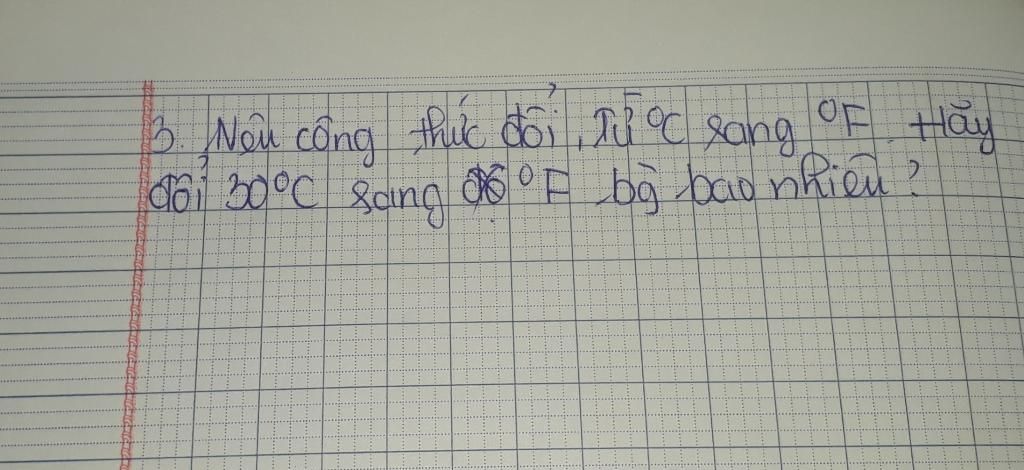 3. Nêu công thức đổi, Từ °C sang °F. Hãy
đổi 30°C sang độ °F bg bao nhiêu?